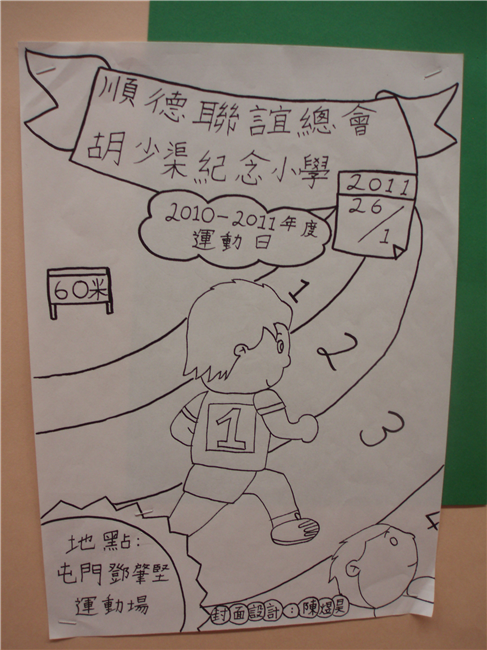 順德聯誼總會
胡少渠紀念小學
2011
26/1
2010-2011年度
運動日
60米
1
2
3
1
4
地點:
屯門鄧肇堅
運動場
封面設計:陳煜昊